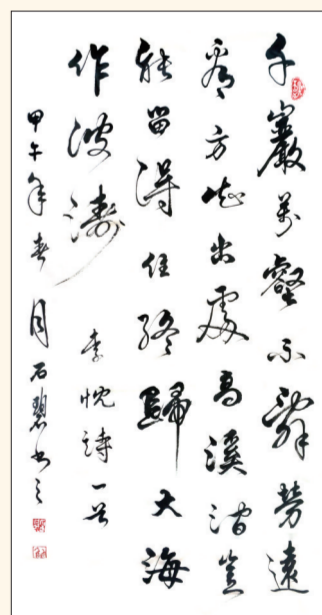 千巖萬壑不辭勞遠
看方知出處高溪澗豈
能留得住終歸大海
作波濤 李忱詩一首
甲午年春月石碧書之